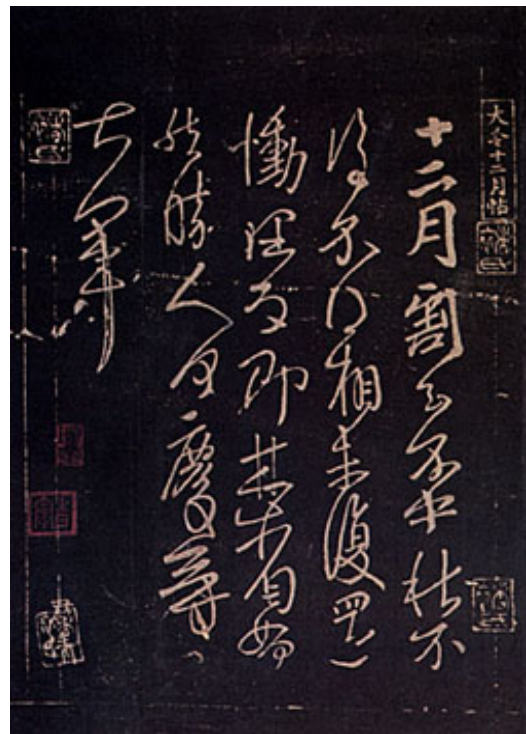 大令十二月帖
十二月割至不中秋不
復不得相未復還
慟理為即甚省如何
然勝人何慶等
大軍